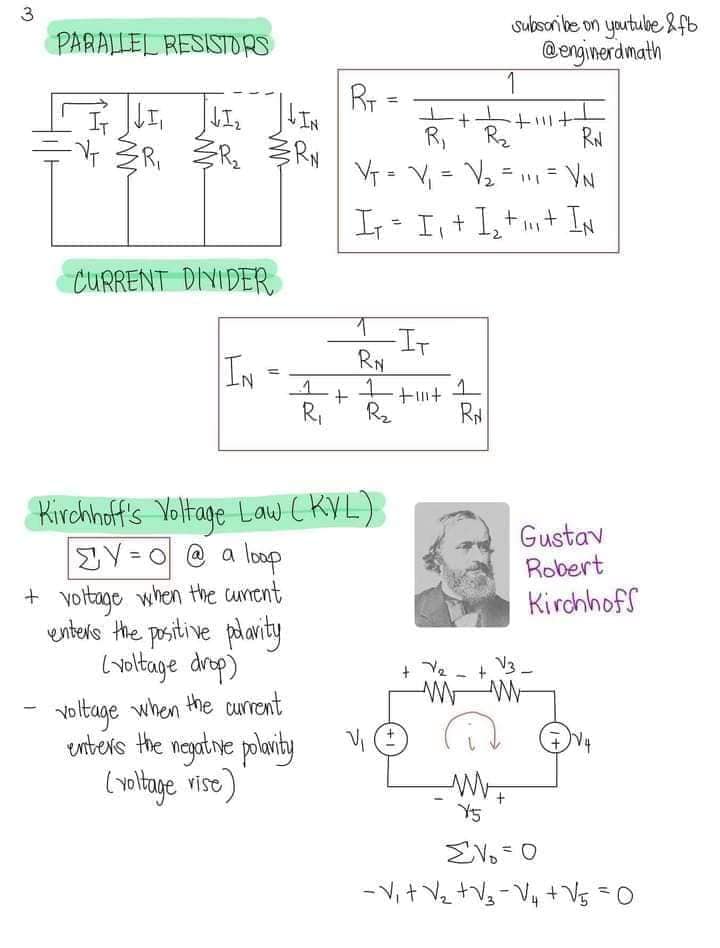 3
subscribe on youtube & fb
@enginerdmath
PARALLEL RESISTORS
I_T ↓I₁ ↓I₂ ↓I_N
V_T R₁ R₂ R_N
R_T = 1 / (1/R₁ + 1/R₂ + ''' + 1/R_N)
V_T = V₁ = V₂ = ''' = V_N
I_T = I₁ + I₂ + ''' + I_N
CURRENT DIVIDER
I_N = (1/R_N I_T) / (1/R₁ + 1/R₂ + ''' + 1/R_N)
Kirchhoff's Voltage Law (KVL)
ΣV = 0 @ a loop
+ voltage when the current
enters the positive polarity
(voltage drop)
- voltage when the current
enters the negative polarity
(voltage rise)
Gustav
Robert
Kirchhoff
+ V₂ - + V₃ -
V₁ + - i - + V₄
- +
V₅
ΣV₀ = 0
-V₁ + V₂ + V₃ - V₄ + V₅ = 0